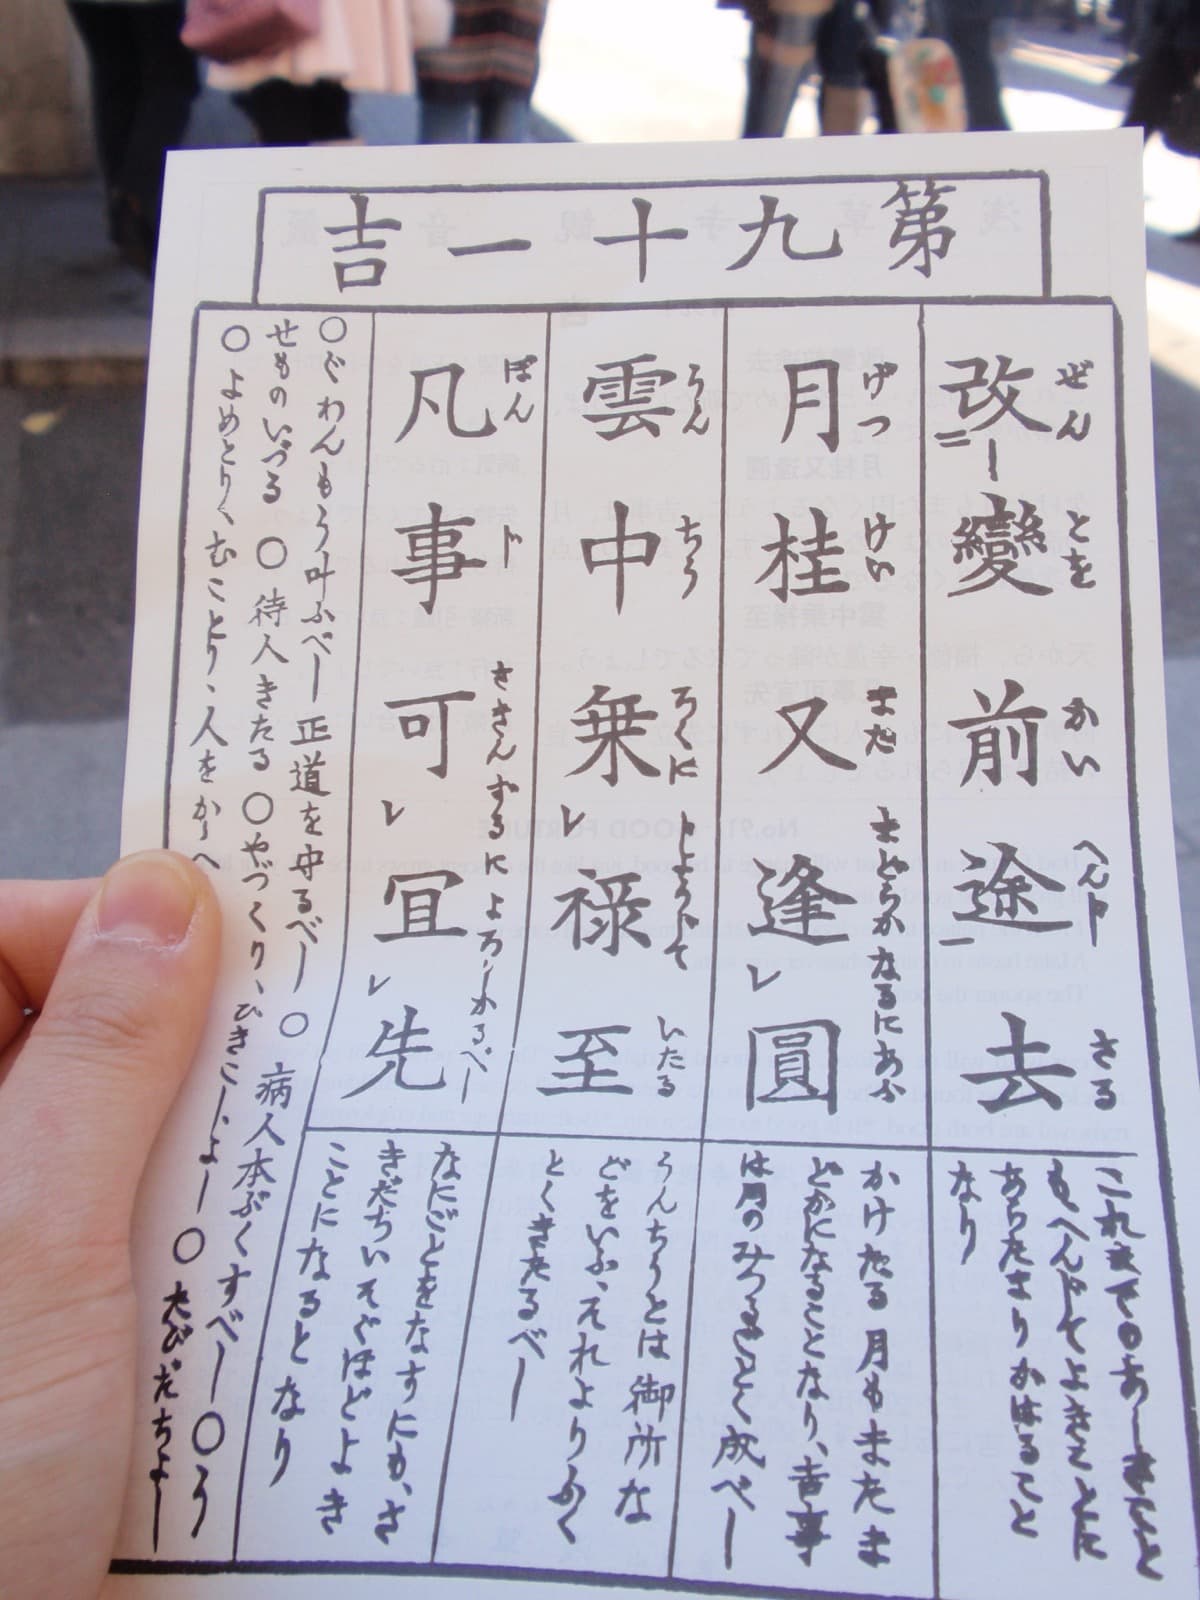 第九十一吉
改變前途去
ぜんとをかいへんしさる
これまでのあしきこと
もへんじてよきことに
あらたまりかはること
なり
月桂又逢圓
げつけいまたまどかなるにあふ
かけたる月もまたま
どかになることなり、吉事
は月のみつるごとく成べし
雲中乗禄至
うんちうろくにじようじていたる
うんちうとは御所な
どをいふ、それよりふく
とくきたるべし
凡事可宜先
ぼんじさきんずるによろしかるべし
なにごとをなすにも、さ
きだちいそぐほどよき
ことになるとなり
○ぐわんもう叶ふべし正道を守るべし ○病人本ぶくすべし○う
せものいづる ○待人きたる ○やづくり、ひきこし、よし ○たびだちよし
○よめとり、むことり、人をかゝへ